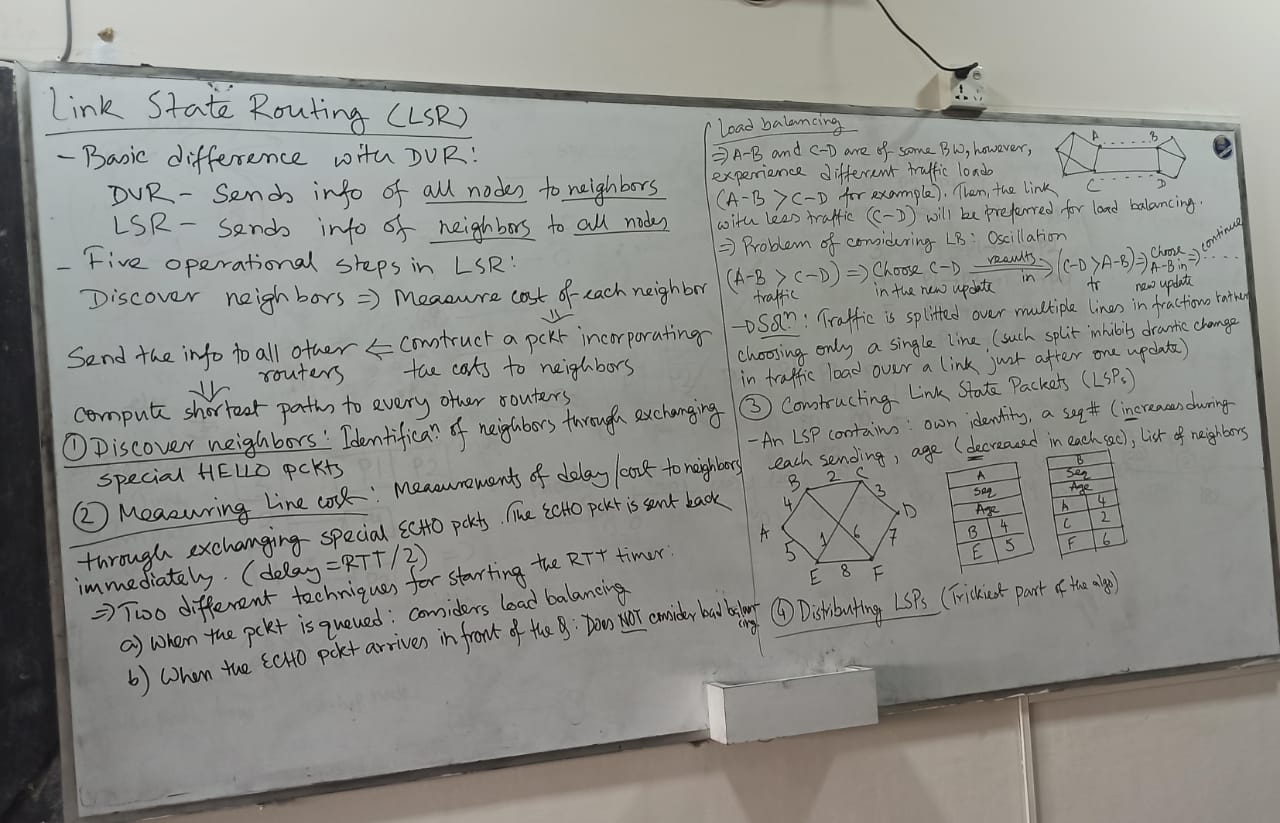 Link State Routing (LSR)
- Basic difference with DVR:
DVR - Sends info of all nodes to neighbors
LSR - Sends info of neighbors to all nodes
- Five operational steps in LSR:
Discover neighbors ⇒ Measure cost of each neighbor
⇓
Send the info to all other routers ⇐ Construct a pckt incorporating the costs to neighbors
⇓
Compute shortest paths to every other routers
① Discover neighbors: Identificaⁿ of neighbors through exchanging
special HELLO pckts
② Measuring Line cost: Measurements of delay/cost to neighbors
through exchanging special ECHO pckts. The ECHO pckt is sent back
immediately. (delay = RTT/2)
⇒ Two different techniques for starting the RTT timer:
a) When the pckt is queued: considers load balancing
b) When the ECHO pckt arrives in front of the Q: Does NOT consider load balancing
Load balancing
⇒ A-B and C-D are of same BW, however,
experience different traffic loads
(A-B > C-D for example). Then, the link
with less traffic (C-D) will be preferred for load balancing.
A B
C D
⇒ Problem of considering LB: Oscillation
(A-B > C-D) ⇒ Choose C-D results in (C-D > A-B) ⇒ Choose A-B in ⇒ continue
traffic in the new update tr new update
→ Solⁿ: Traffic is splitted over multiple lines in fractions rather
choosing only a single line (such split inhibits drastic change
in traffic load over a link just after one update)
③ Constructing Link State Packets (LSPs)
- An LSP contains: own identity, a seq# (increases during
each sending, age (decreased in each sec), list of neighbors
B 2 C
4 3
A D
5 1 6 7
E 8 F
A
Seq
Age
B 4
E 5
B
Seq
Age
A 4
C 2
F 6
④ Distributing LSPs (Trickiest part of the algo)